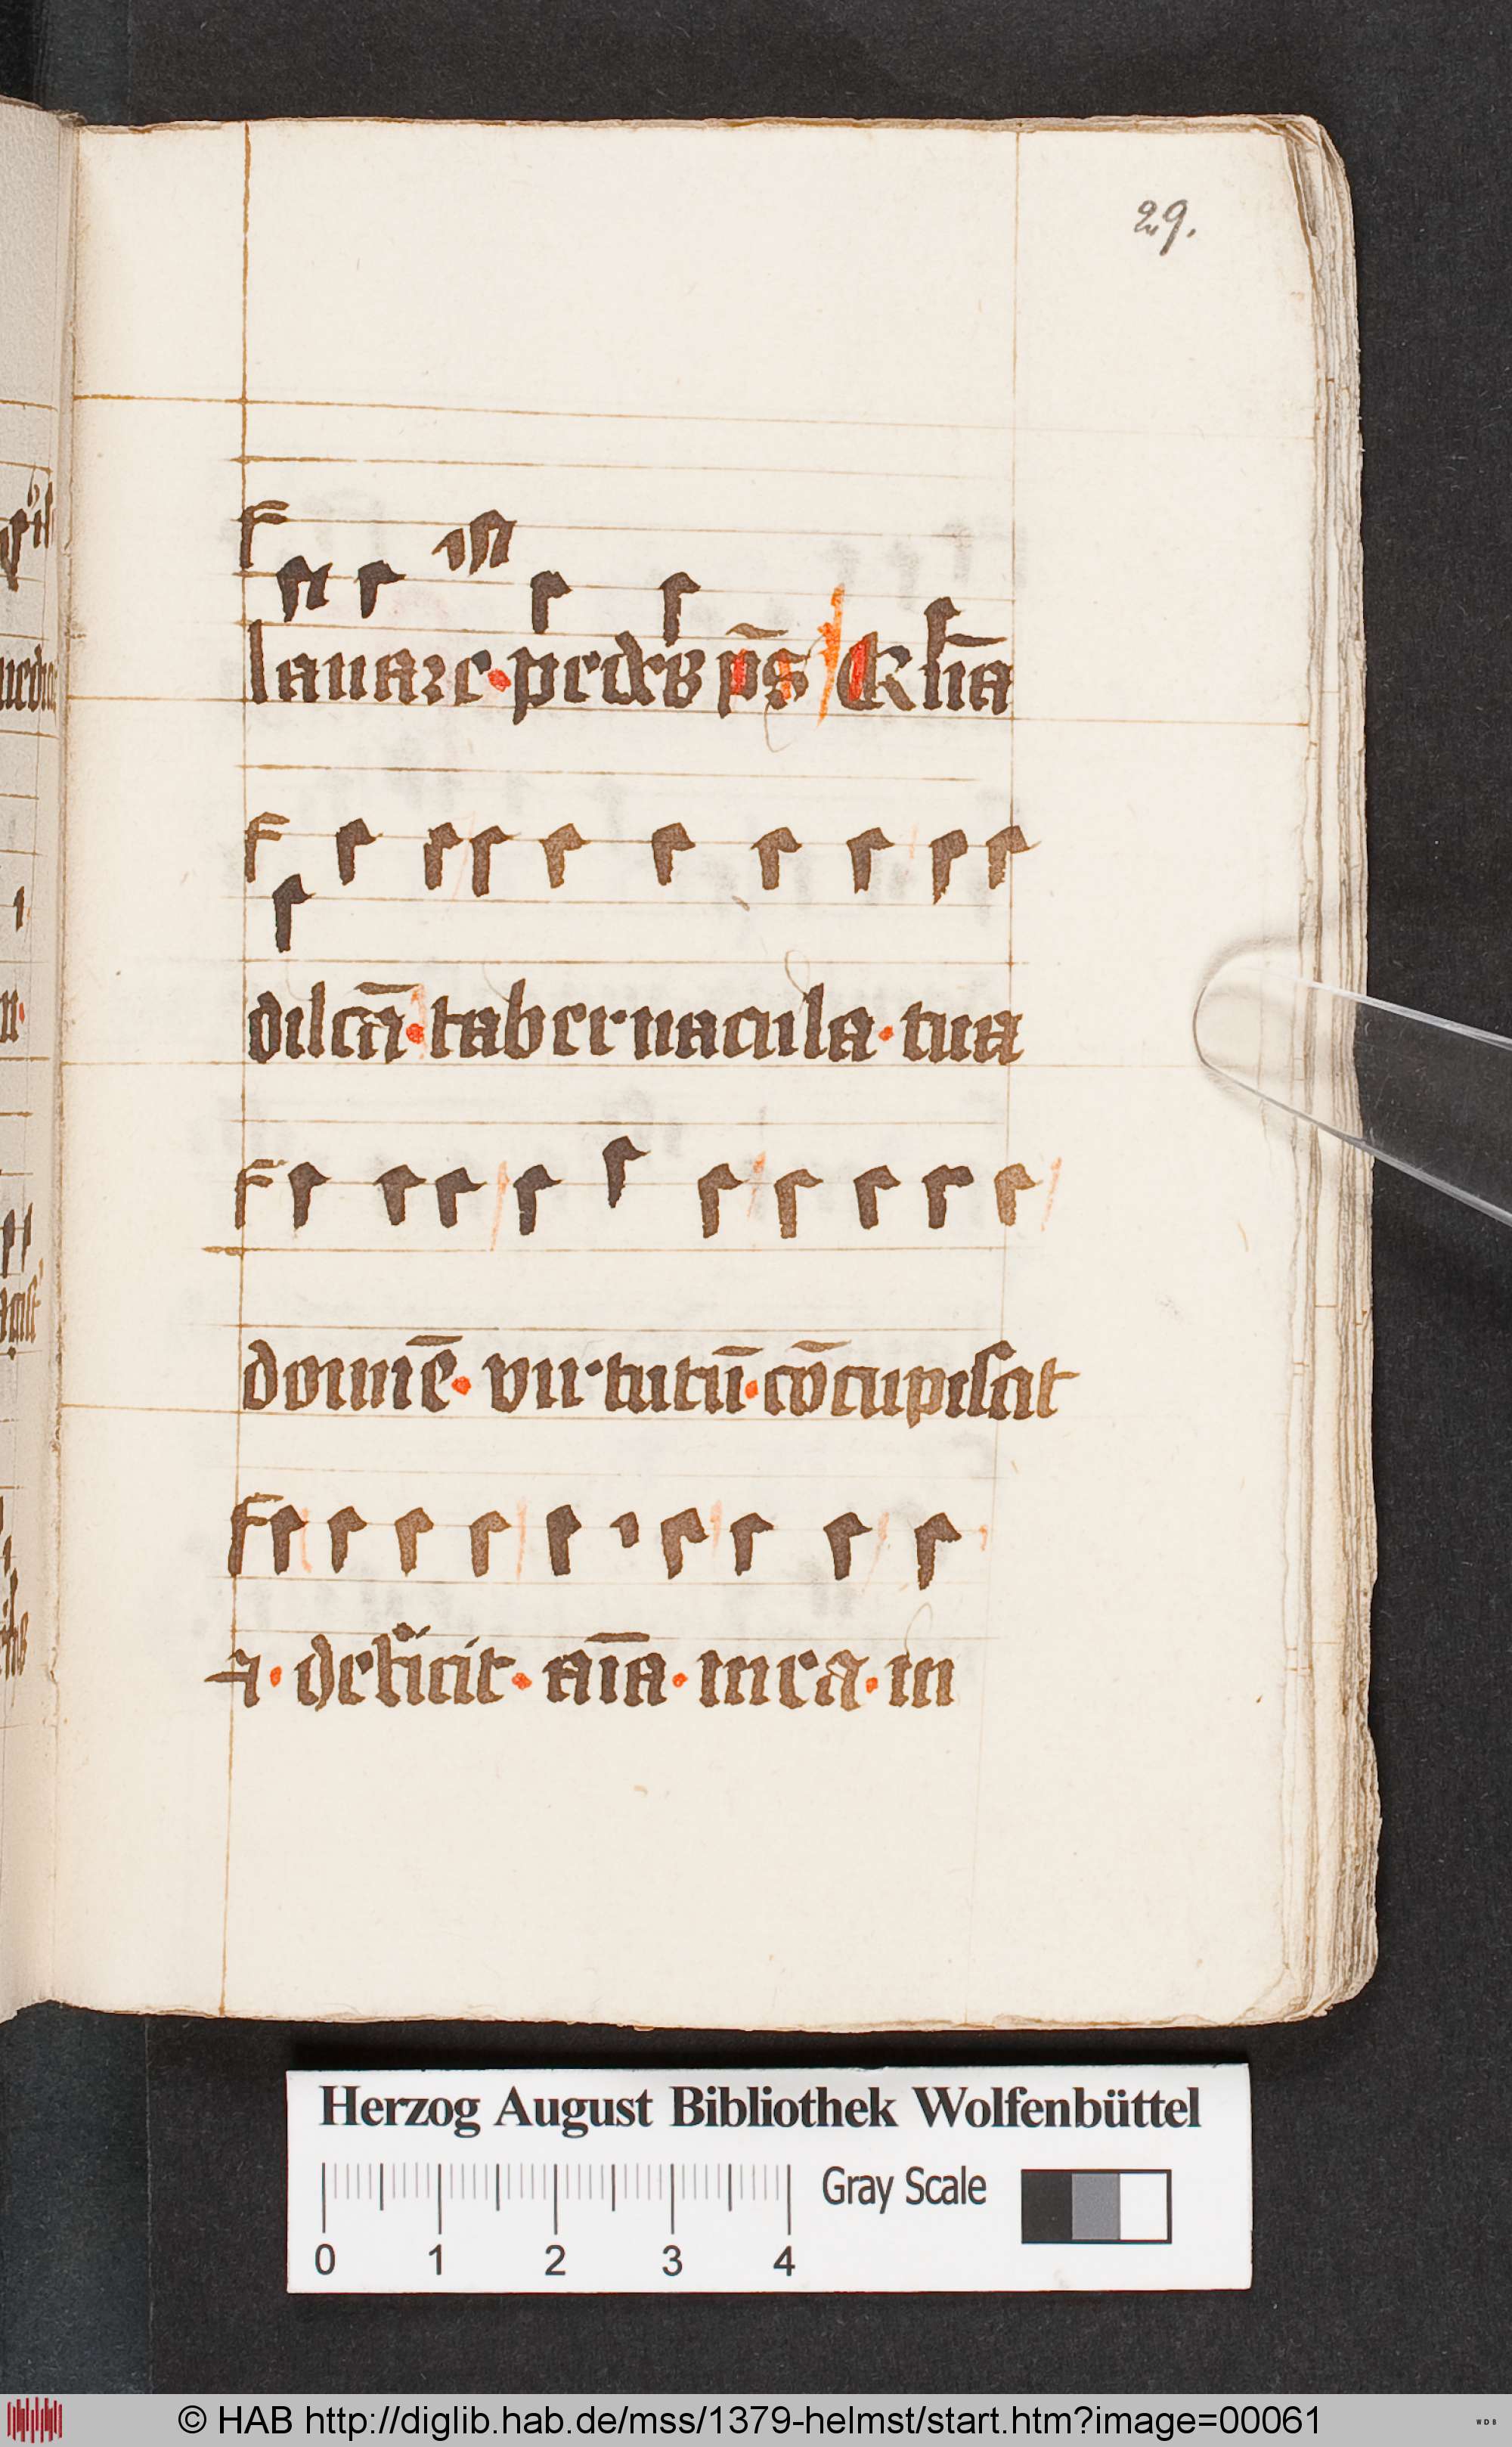 29.
lauare · pedes p̄s / Qr̄ hīa
dilcā · tabernacula · tua
domīe · virtutū · cōcupiscit
⁊ · deficit · aīa · mea · in
Herzog August Bibliothek Wolfenbüttel
0 1 2 3 4 Gray Scale
© HAB http://diglib.hab.de/mss/1379-helmst/start.htm?image=00061